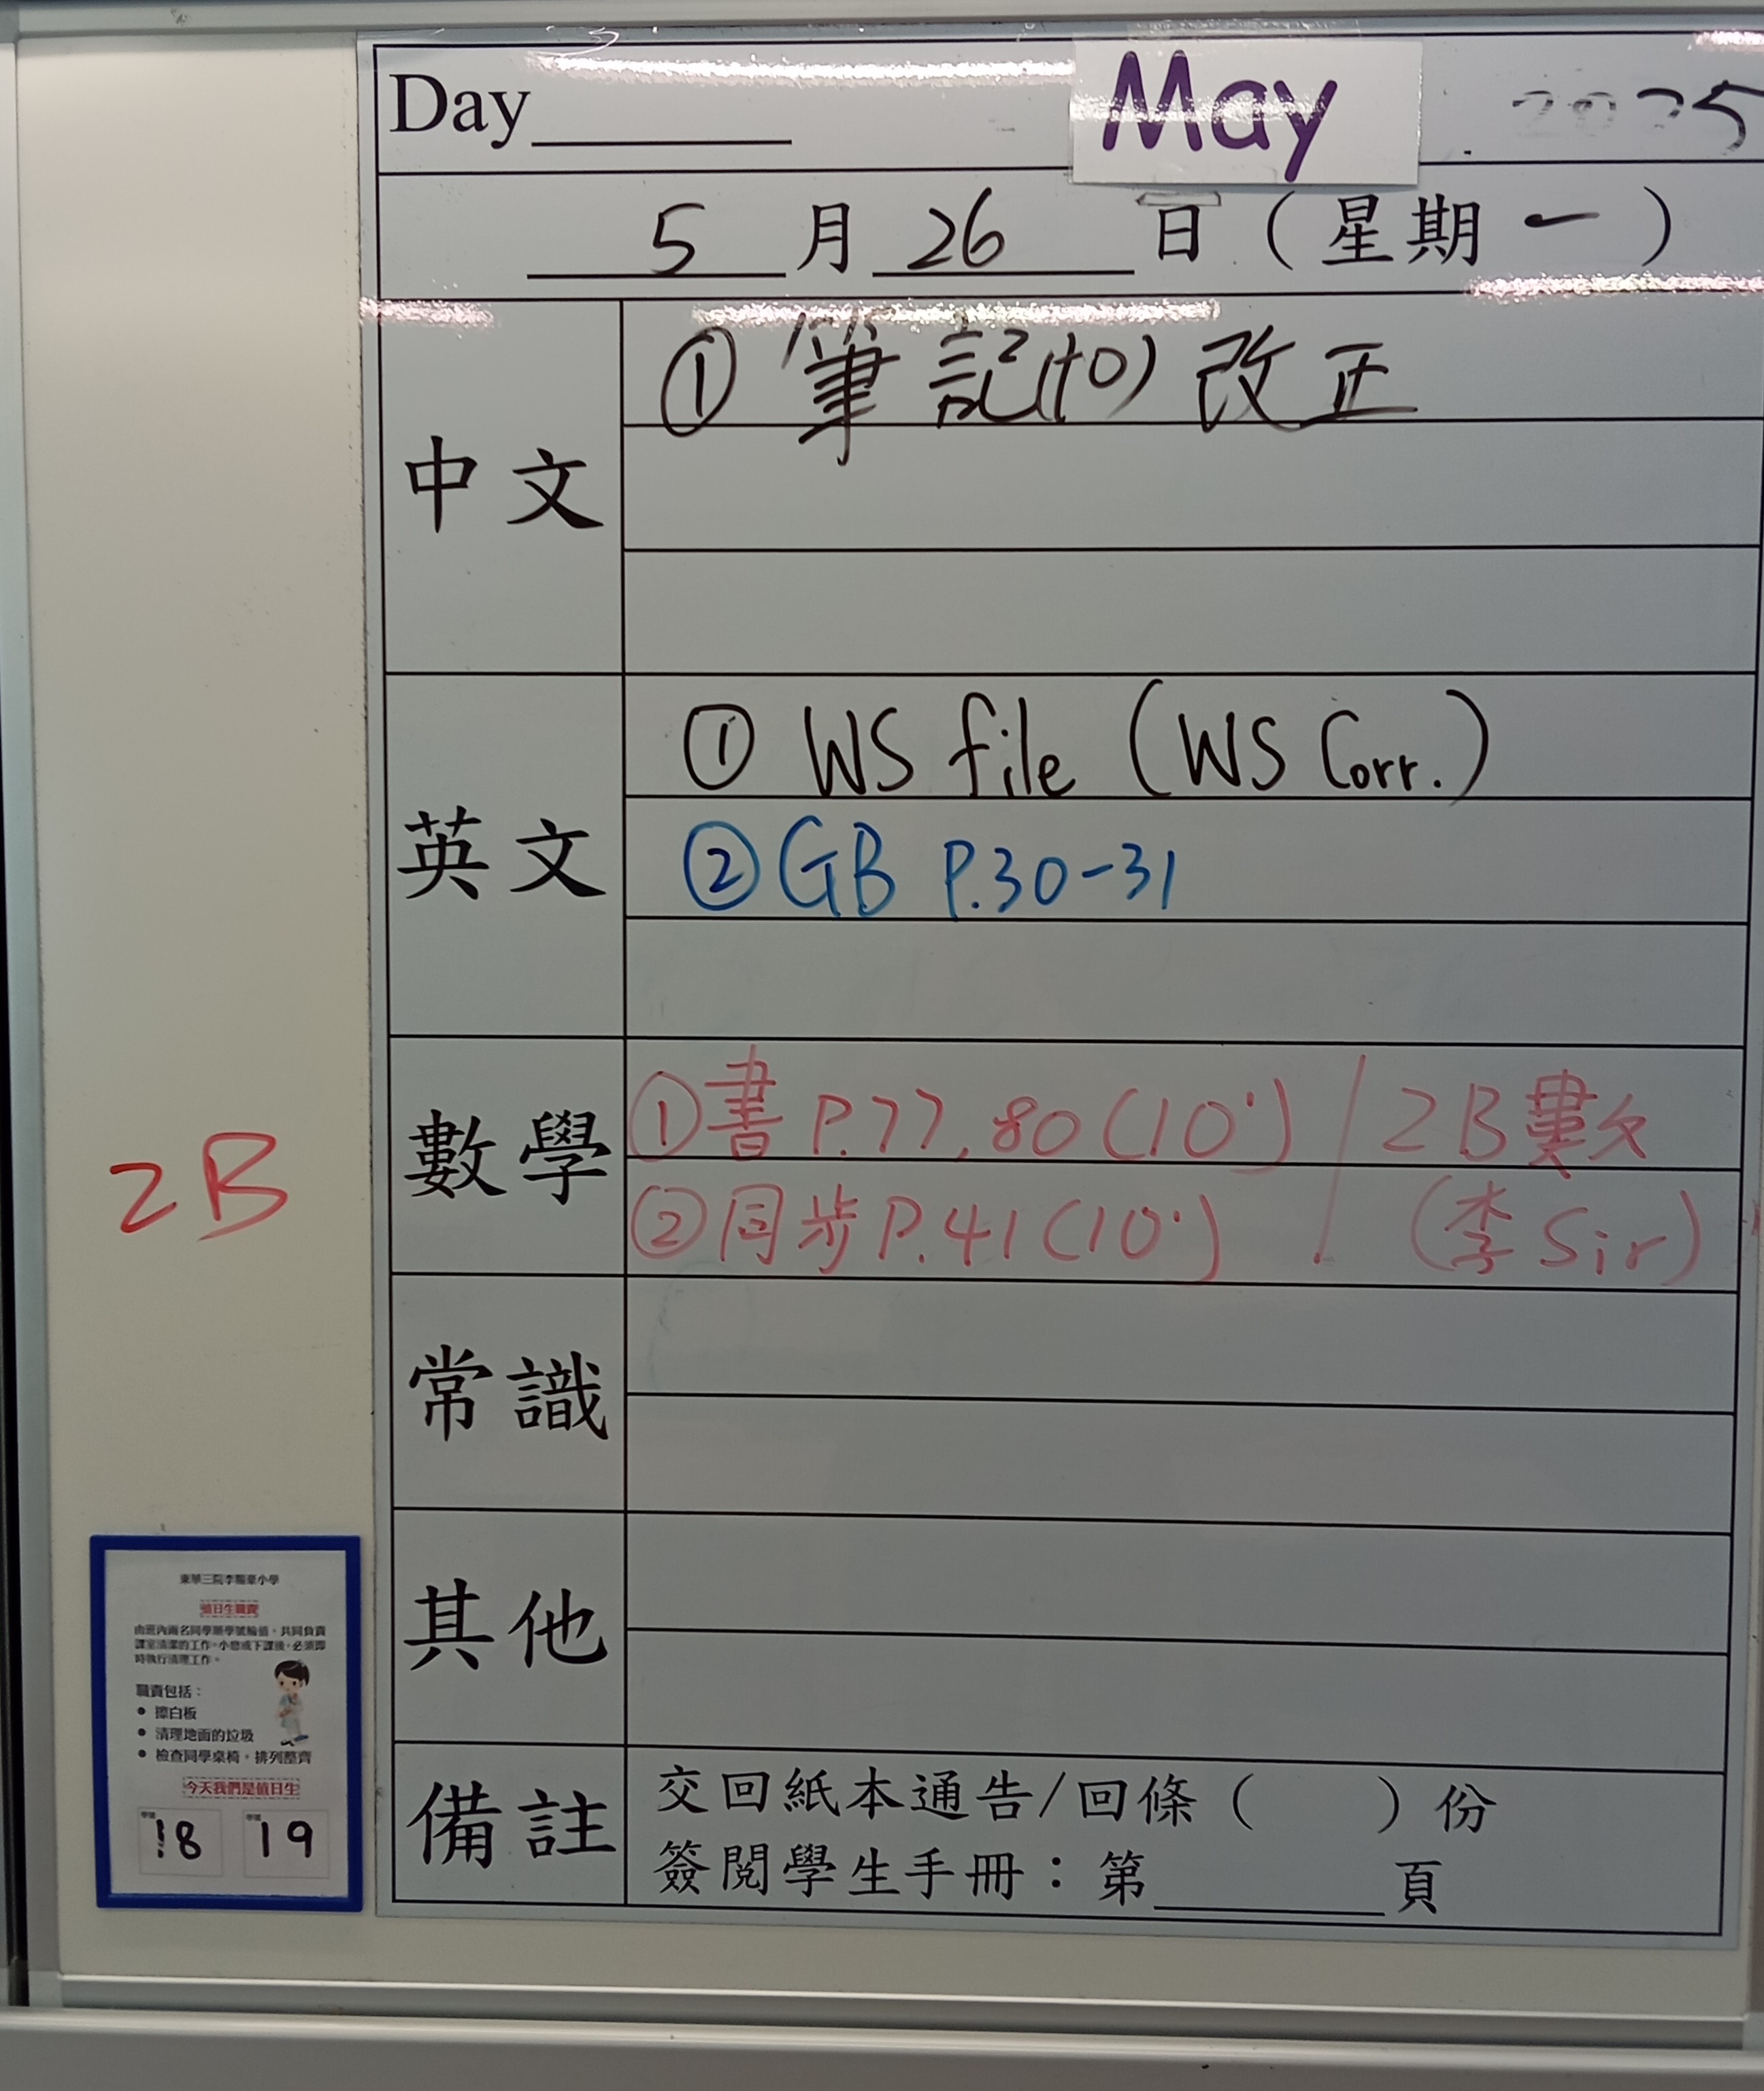 Day
May 2025
5月26日（星期一）
中文
① 筆記(十) 改正
英文
① WS file (WS Corr.)
② GB P.30-31
數學
① 書 P.77, 80 (10') / 2B數
② 同步 P.41 (10') (李Sir)
2B
常識
其他
備註
交回紙本通告/回條（ ）份
簽閱學生手冊：第 頁
值日生職責
由班內兩名同學順學號輪值，共同負責
課室清潔的工作。小息或下課後，必須即
時執行清理工作。
職責包括：
● 擦白板
● 清理地面的垃圾
● 檢查同學桌椅，排列整齊
今天我們是值日生
學號 學號
18 19